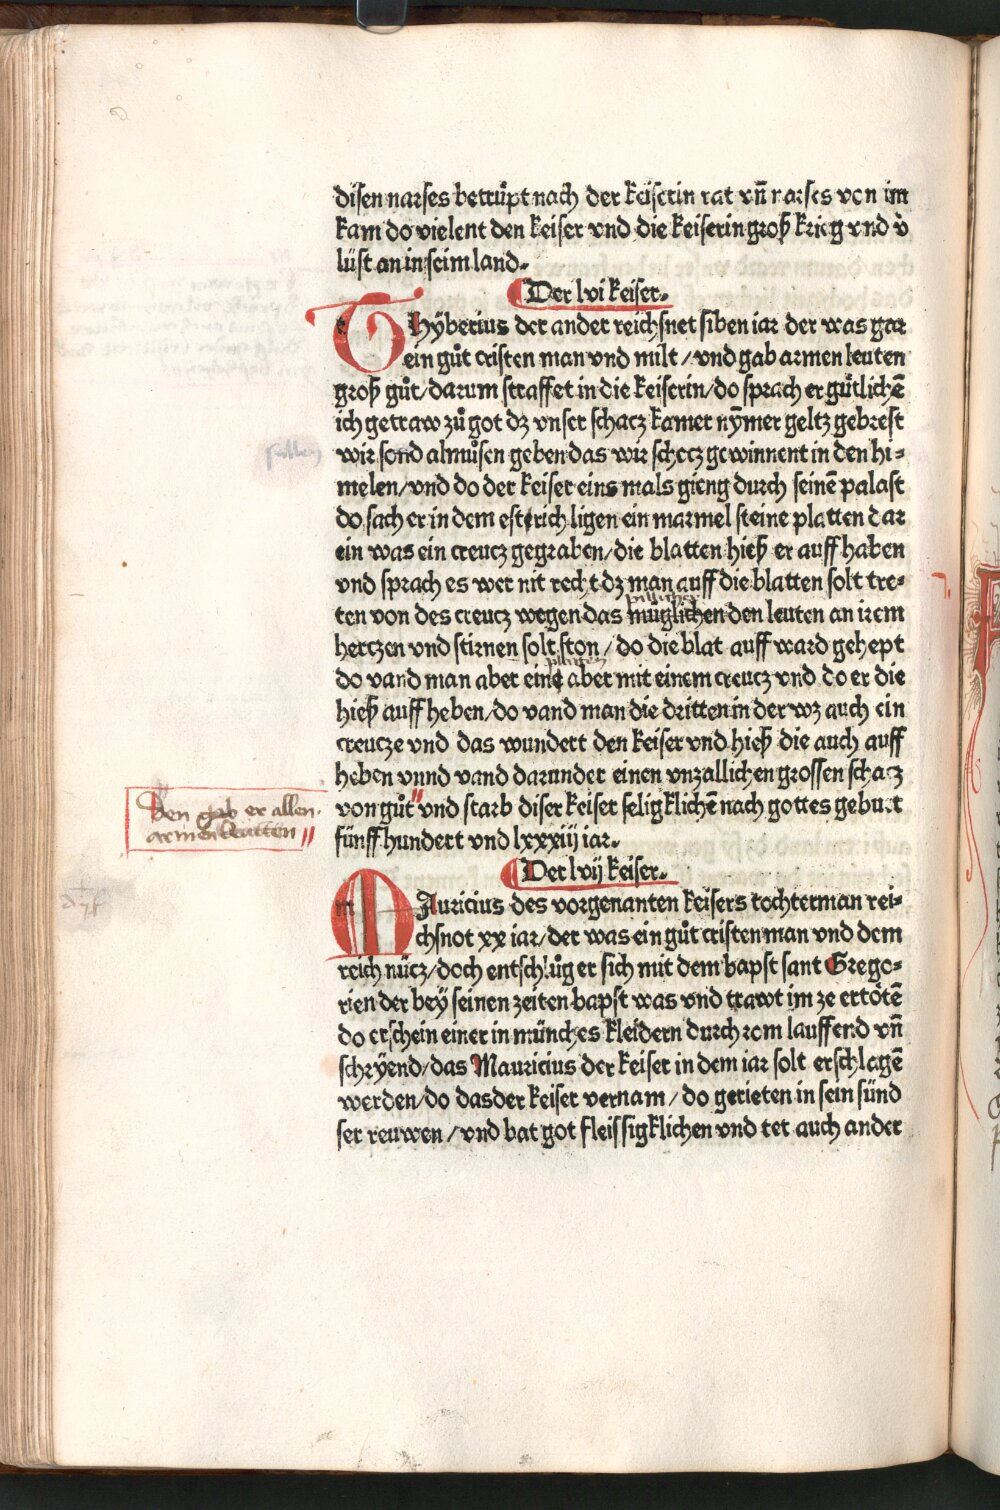 disen narses betrůpt nach der keiserin rat vñ narses von im
kam do vielent den keiser vnd die keiserin groß krieg vnd v̓
lüst an in seim land.
Der lvi keiser.
Thÿberius der ander reichsnet siben iar der was gar
ein gůt cristen man vnd milt / vnd gab armen leuten
groß gůt / darum straffet in die keiserin / do sprach er gütlichē
ich getraw zů got dz vnser schacz kamer nÿmer geltz gebrest
wir sond almůsen geben das wir schecz gewinnent in den hi=
melen / vnd do der keiser eins mals gieng durch seinē palast
do sach er in dem estrich ligen ein marmel steine platten dar
ein was ein creucz gegraben / die blatten hieß er auff haben
vnd sprach es wer nit recht dz man auff die blatten solt tre=
ten von des creucz wegen das müglichen den leuten an irem
herczen vnd stirnen solt ston / do die blat auff ward gehept
platten
do vand man aber eine aber mit einem creucz vnd do er die
hieß auff heben / do vand man die dritten in der wz auch ein
creucze vnd das wundert den keiser vnd hieß die auch auff
heben vnnd vand darunder einen vnzallichen grossen schacz
von gůt vnd starb diser keiser seligklichē nach gottes geburt
fünff hundert vnd lxxxiij iar.
Den gab er allen
armen leutten
Der lvij keiser.
MAuricius des vorgenanten keisers tochterman rei=
chsnot xx iar / der was ein gůt cristen man vnd dem
reich nücz / doch entschlůg er sich mit dem bapst sant Grego=
rien der beÿ seinen zeiten bapst was vnd trawt im ze ertötē
do erschein einer in münches kleidern durch rom lauffend vñ
schrÿend / das Mauricius der keiser in dem iar solt erschlagē
werden / do das der keiser vernam / do gerieten in sein sünd
ser reuwen / vnd bat got fleissigklichen vnd tet auch ander